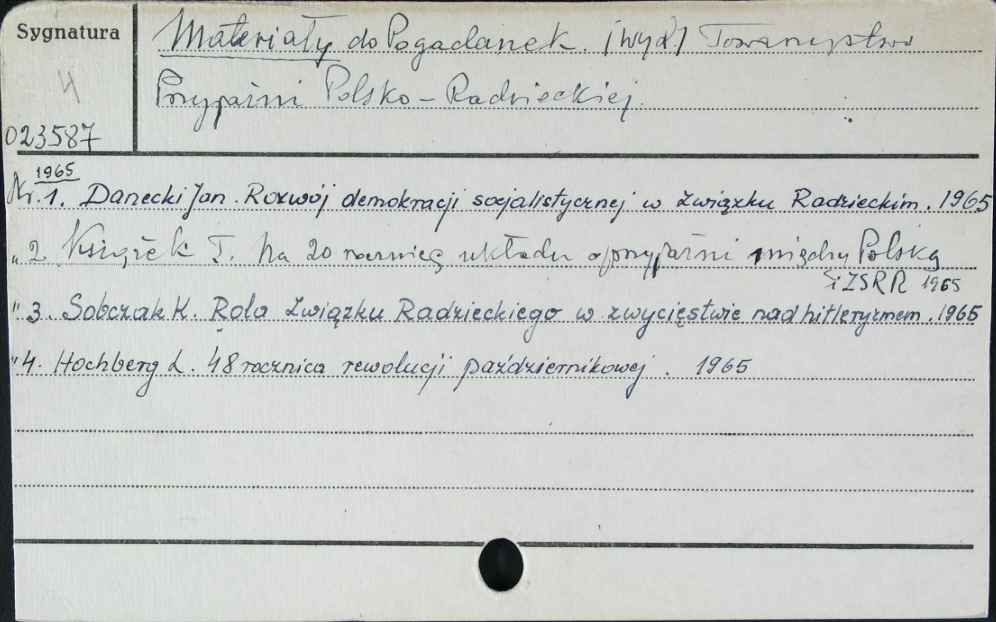 Sygnatura
4
023587
Materiały do Pogadanek. /Wyd/ Towarzystwo
Przyjaźni Polsko-Radzieckiej.
1965
Nr. 1. Danecki Jan. Rozwój demokracji socjalistycznej w Związku Radzieckim. 1965
„ 2. Książek T. Na 20 rocznicę układu o przyjaźni między Polską
i ZSRR 1965
" 3. Sobczak K. Rola Związku Radzieckiego w zwycięstwie nad hitleryzmem. 1965
" 4. Hochberg L. 48 rocznica rewolucji październikowej. 1965